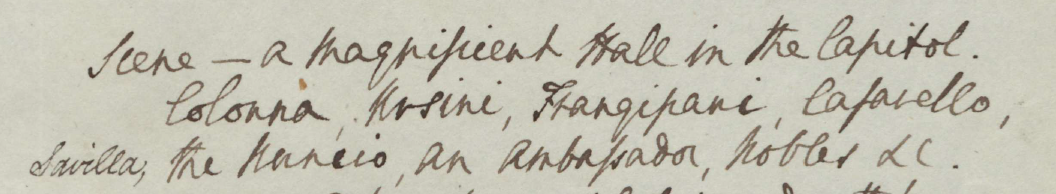 Scene — a magnificent Hall in the Capitol.
Colonna, Ursini, Frangipani, Cafarello,
Savilla, the Nuncio, an Ambassador, Nobles &c.